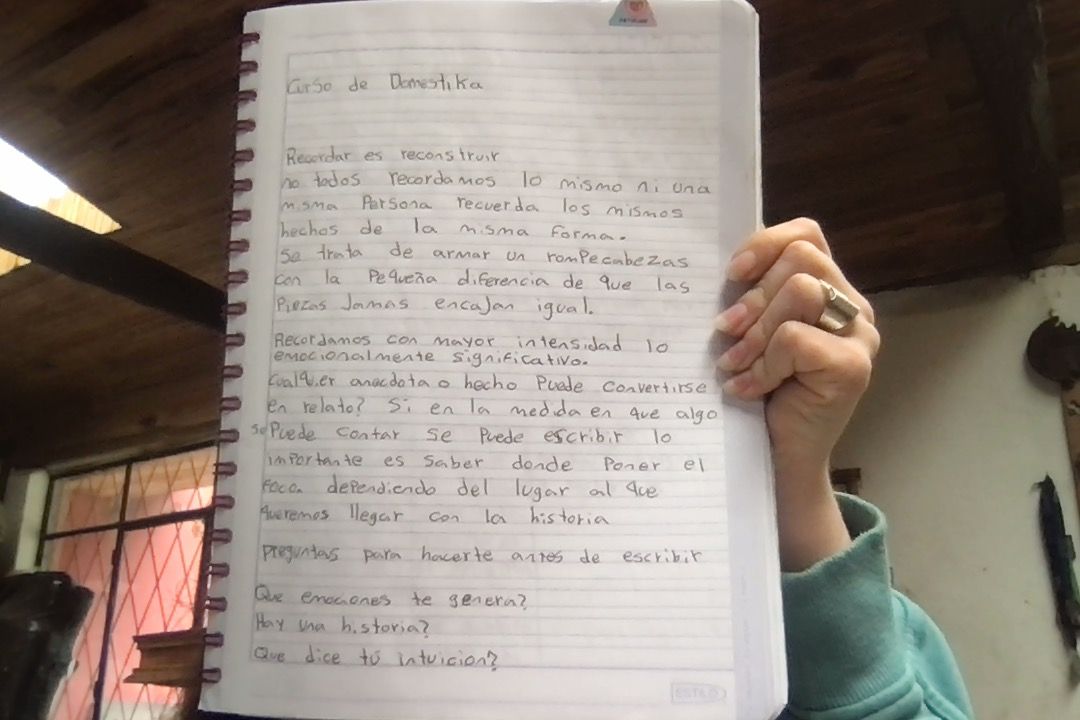 Curso de Domestika
Recordar es reconstruir
no todos recordamos lo mismo ni una
misma Persona recuerda los mismos
hechos de la misma forma.
Se trata de armar un rompecabezas
con la Pequeña diferencia de que las
Piezas Jamas encajan igual.
Recordamos con mayor intensidad lo
emocionalmente significativo.
Cualquier anecdota o hecho Puede convertirse
en relato? Si en la medida en que algo
se Puede contar se Puede escribir lo
importante es saber donde Poner el
foco. dependiendo del lugar al que
queremos llegar con la historia
preguntas para hacerte antes de escribir
Que emociones te genera?
Hay una historia?
Que dice tú intuicion?